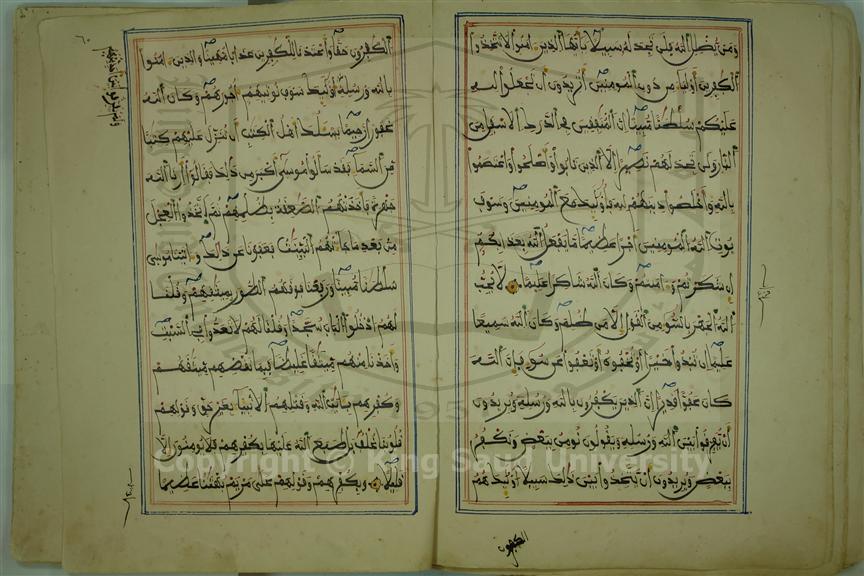 ومن يضلل الله فلن تجد له سبيلا يايها الذين امنوا لا تتخذوا
الكفرين اوليا من دون المومنين اتريدون ان تجعلوا لله
عليكم سلطنا مبينا ان المنفقين في الدرك الاسفل من
النار ولن تجد لهم نصيرا الا الذين تابوا واصلحوا واعتصموا
بالله واخلصوا دينهم لله فاوليك مع المومنين وسوف
يوت الله المومنين اجرا عظيما ما يفعل الله بعذابكم
ان شكرتم وءامنتم وكان الله شاكرا عليما لا يحب
الله الجهر بالسوء من القول الا من ظلم وكان الله سميعا
عليما ان تبدوا خيرا او تخفوه او تعفوا عن سوء فان الله
كان عفوا قديرا ان الذين يكفرون بالله ورسله ويريدون
ان يفرقوا بين الله ورسله ويقولون نومن ببعض ونكفر
ببعض ويريدون ان يتخذوا بين ذلك سبيلا اوليك هم
الكفرون
الكفرون حقا واعتدنا للكفرين عذابا مهينا والذين امنوا
بالله ورسله ولم يفرقوا بين احد منهم
اوليك سوف نوتيهم اجورهم وكان الله
غفورا رحيما يسلك اهل الكتب ان تنزل عليهم كتبا
من السما فقد سالوا موسى اكبر من ذلك فقالوا ارنا الله
جهرة فاخذتهم الصعقة بظلمهم ثم اتخذوا العجل
من بعد ما جاتهم البينت فعفونا عن ذلك واتينا موسى
سلطنا مبينا ورفعنا فوقهم الطور بميثقهم وقلنا
لهم ادخلوا الباب سجدا وقلنا لهم لا تعدوا في السبت
واخذنا منهم ميثقا غليظا فبما نقضهم ميثقهم
وكفرهم بايت الله وقتلهم الانبيا بغير حق وقولهم
قلوبنا غلف بل طبع الله عليها بكفرهم فلا يومنون الا
قليلا وبكفرهم وقولهم على مريم بهتنا عظيما
Copyright © King Saud University